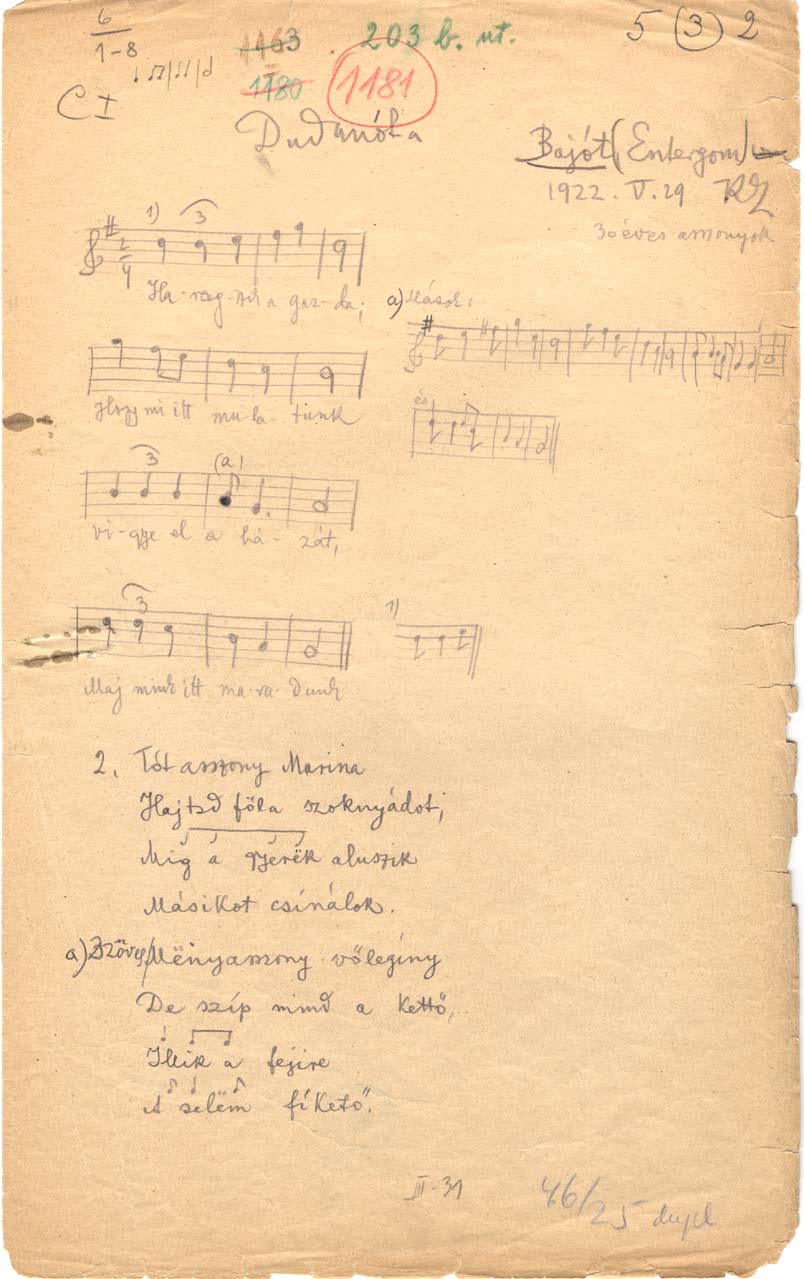 6
1-8
1163. 203 b. ut.
5 (3) 2
1180 1181
C I
Dudanóta
Bajót (Esztergom)
1922. V. 29
30 éves asszonyok
1) 3
Ha-rag-szik a gaz-da;
a) Mások:
Hogy mi itt mu-la-tunk
és
3 (a)
vi-gye el a há-zát,
3
1)
Maj mink itt ma-ra-dunk
2. Tót asszony Marina
Hajtsd föl a szoknyádot,
Mig a gyerëk aluszik
Másikot csinálok.
a) Szöveg/Mënyasszony vőlegíny
De szíp mind a kettő,
Illik a fejire
A selëm fíkető.
III-31
46/25 dupl